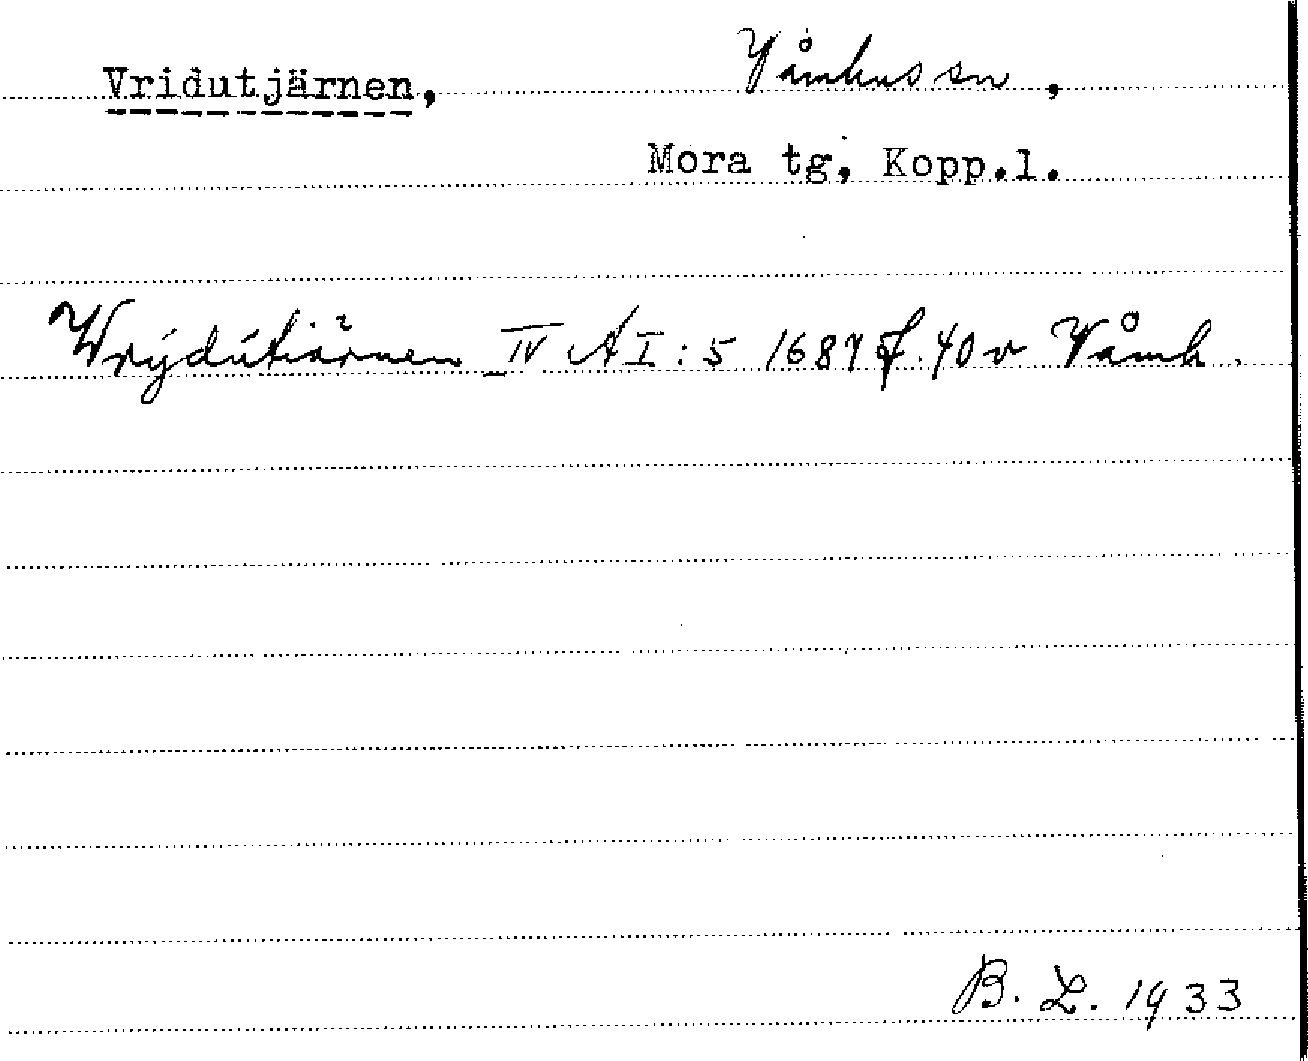 Vridutjärnen, Våmhus sn,
Mora tg, Kopp.l.
Wrÿdútiärnen IV A I:5 1687 f. 40 v Våmh.
B. L. 1933